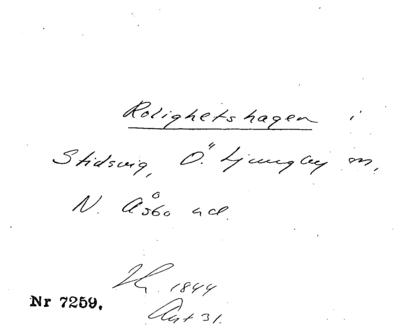 Rolighetshagen i
Stidsvig, Ö. Ljungby sn,
N. Åsbo hd.
1844
Nr 7259.
31.